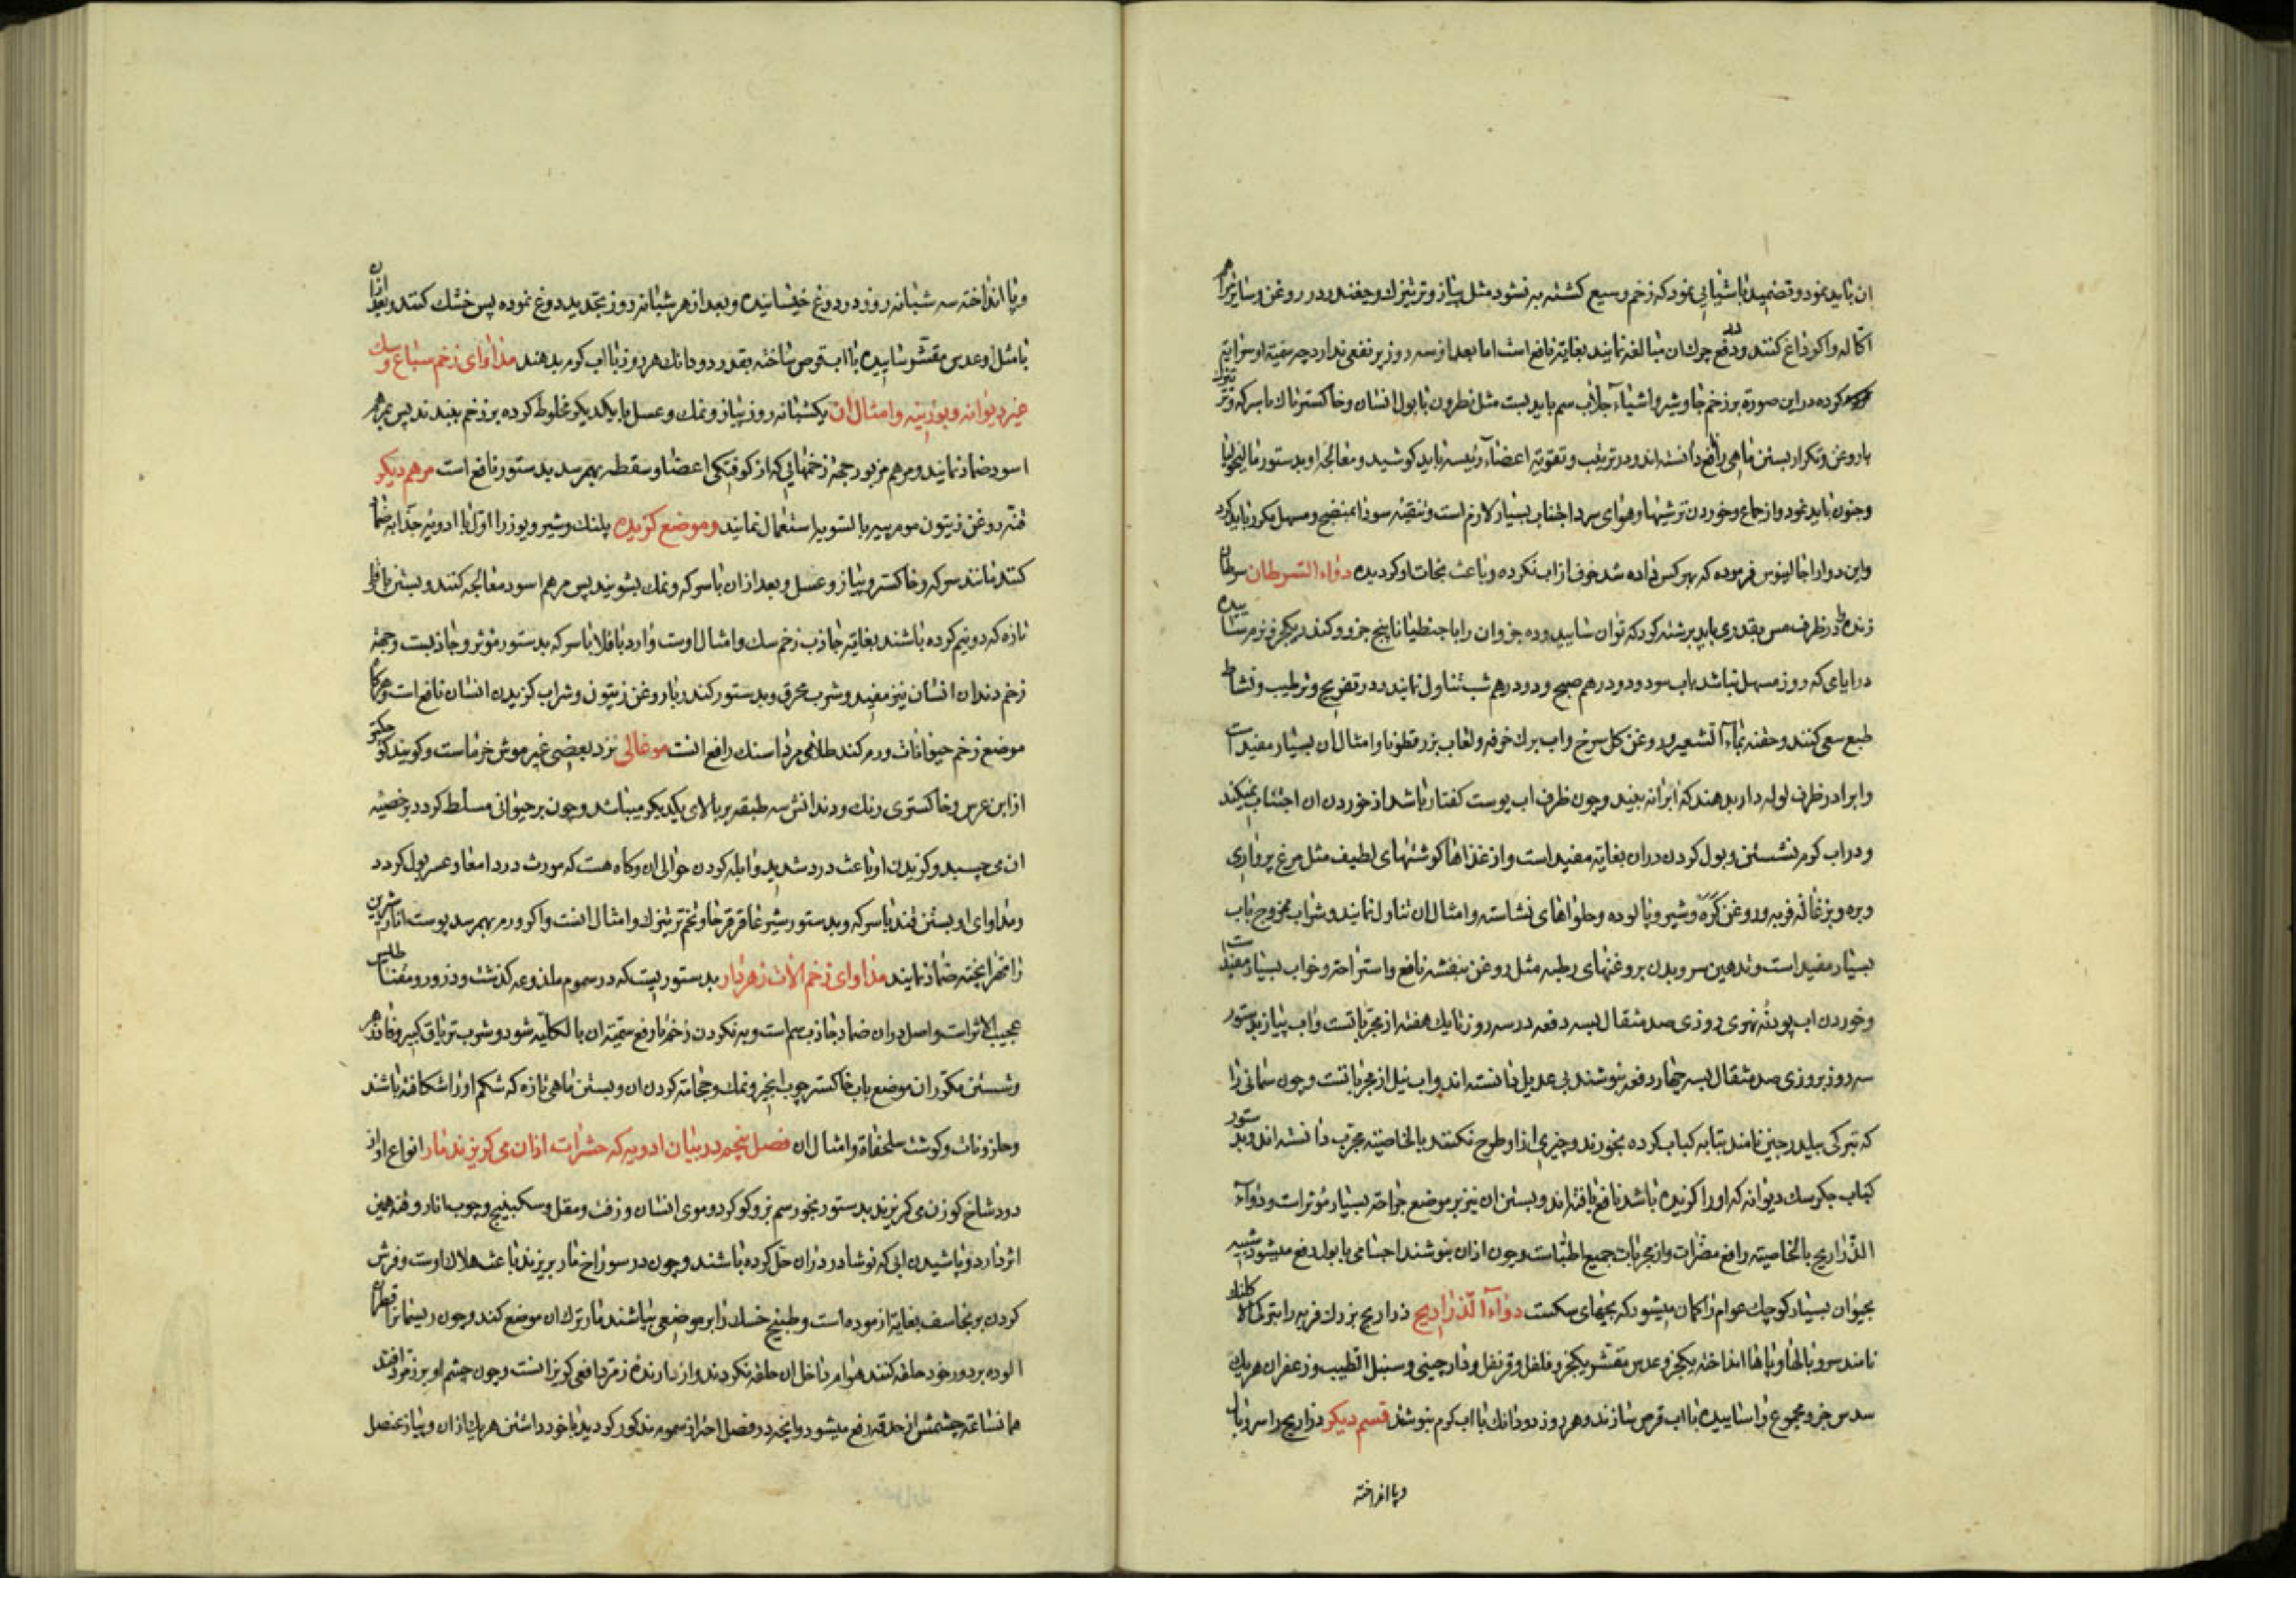 ان باید نمود و تضمید باشیایی نمود که زخم وسیع کشته به نشود مثل پیاز و ترتیزک و جغندر و در روغن و سایر
اکاله و اکر داغ کنند و در دفع چرک ان مبالغه نمایند بغایة نافع است اما بعد از سه روز پر نفعی ندارد چه سمیة او سرایة
کرده در این صورة بر زخم جاوشیر و اشیاء جلاب سم باید بست مثل نطرون با بول انسان و خاکستر تاک با سرکه و
با روغن و تکرار بستن ماهی را نافع دانسته اند و در ترتیب و تقویة اعضاء رئیسه باید کوشید و معالجه او بدستور مالیخولیا
و جنون باید نمود و از جماع و خوردن ترشیها و هوای سرد اجتناب بسیار لازم است و تنقیه سودا بمنضج و مسهل مکرر باید کرد
و این دوا را جالینوس فرموده که بهر کس داده شد خوف از اب نکرده و باعث نجات او کردیده دواء السرطان سرطان
زنده را در ظرف مس بقدری باید برشته کرد که توان سایید و ده جزو ان را با جنطیانا پنج جزو و کندر یکجزو نرم ساییده
در ایامی که روز مسهل نباشد باب سرد و دو درهم صبح و دو درهم شب تناول نمایند و در تفریح و ترطیب و نشاط
طبع سعی کنند و حقنه بماء الشعیر و روغن کل سرخ و اب برک خرفه و لعاب بزر قطونا و امثال ان بسیار مفید است
و اب را در ظرف لوله دار بدهند که اب را نه بیند و چون ظرف اب پوست کفتار باشد از خوردن ان اجتناب نمیکند
و در اب کرم نشستن و بول کردن در ان بغایة مفید است و از غذاها کوشتهای لطیف مثل مرغ پرواری
و بره و بزغاله فربه و روغن کره و شیر و پالوده و حلواهای نشاسته و امثال ان تناول نمایند و شراب ممزوج باب
بسیار مفید است و تدهین سر و بدن بروغنهای رطبه مثل روغن بنفشه نافع و استراحة و خواب بسیار مفید است
و خوردن اب پودنه نهری روزی صد مثقال بسه دفعه در سه روز تا یک هفته از مجربات است و اب پیاز بدستور
سه روز بروزی صد مثقال بسه چهار دفعه بنوشند بی عدیل دانسته اند و اب نیل از مجربات است و چون سمانی را
که بترکی بیلدرجین نامند بتابه کباب کرده بخورند و چیزی از او طرح نکنند بالخاصیة مجرب دانسته اند و بدستور
کباب جکر سک دیوانه که او را کزیده باشد نافع یافته اند و بستن ان نیز بر موضع جراحة بسیار مؤثر است و دواء
الذراریح بالخاصیة رافع مضرات و از مجربات جمیع اطباست و چون از ان بنوشند اجسامی با بول دفع میشود شبیه
بحیوان بسیار کوچک عوام را کمان میشود که بچهای سکست دواء الذراریح ذراریح بزرک فربه را بترکی
نامند سر و بالها و پاها انداخته یکجزو عدس مقشر یکجزو فلفل و قرنفل و دارچینی و سنبل الطیب و زعفران هر یک
سدس جزو مجموع را ساییده با اب قرص سازند و هر روز دو دانک با اب کرم بنوشند قسم دیکر ذراریح را سر و بال
و پا انداخته
و پا انداخته سه شبانه روز در دوغ خیسانیده و بعد از هر شبانه روز تجدید دوغ نموده پس خشک کنند و بعد از ان
با مثل او عدس مقشر ساییده با اب قرص ساخته بقدر دو دانک هر روز با اب کرم بدهند مداوای زخم سباع و سک
غیر دیوانه و بوزینه و امثال ان یکشبانه روز پیاز و نمک و عسل با یکدیکر مخلوط کرده بر زخم ببندند پس مرهم
اسود ضماد نمایند و مرهم مزبور جهة زخمهایی که از کوفتکی اعضا و سقطه بهم رسد بدستور نافع است مرهم دیکر
قنه روغن زیتون موم پیه بالسویه استعمال نمایند و موضع کزیده پلنک و شیر و یوز را اول با ادویه جذابه ضماد
کنند مانند سرکه و خاکستر و پیاز و عسل و بعد از ان با سرکه و نمک بشویند پس مرهم اسود معالجه کنند و بستن باقلی
تازه که دو نیم کرده باشند بغایة جاذب زخم سک و امثال اوست و ارد باقلا با سرکه بدستور مؤثر و جاذبست و جهة
زخم دندان انسان نیز مفید و شرب محرق و بدستور کندر با روغن زیتون و شراب کزیدن انسان نافع است و هرکاه
موضع زخم حیوانات ورم کند طلای مرداسنک رافع انست موغالی نزد بعضی غیر موش خرماست و کویند کوچکتر
از ابن عرس و خاکستری رنک و دندانش سه طبقه بر بالای یکدیکر میباشد و چون بر حیوانی مسلط کردد بر خصیه
ان می چسبد و کزیدن او باعث درد شدید و ابله کردن حوالی ان و کاه هست که مورث درد امعا و عسر بول کردد
و مداوای او بستن قنه با سرکه و بدستور شیر عاقرقرحا و تخم ترتیزک و امثال انست و اکر ورم بهم رسد پوست انار شیرین
را مهرا پخته ضماد نمایند مداوای زخم الات زهردار بدستوریست که در سموم ملذوعه کذشت و ذرور و مغناطیس
عجیب الاثر است و اصل در ان ضماد جاذب سم است و به نکردن زخم تا رفع سمیة ان بالکلیه شود و شرب تریاق کبیر و فادزهر
و شستن مکرر ان موضع باب خاکستر چوب انجیر و نمک و حجامة کردن ان و بستن ماهی تازه که شکم او را شکافته باشند
و حلزونات و کوشت سلحفاة و امثال ان فصل پنجم در بیان ادویه که حشرات از ان می کریزند مار انواع او از
دود شاخ کوزن می کریزند بدستور بخور سم بز و کوکرد و موی انسان و زفت و مقل و سکبینج و چوب انار و قنه همین
اثر دارد و پاشیدن ابی که نوشادر در ان حل کرده باشند و چون در سوراخ مار بریزند باعث هلاک اوست و فرش
کردن برنجاسف بغایة ازموده است و طبیخ خسک را بر موضعی بپاشند مار ترک ان موضع کند و چون ریسمان را قطران
الوده بر دور خود حلقه کنند هوام داخل ان حلقه نکردند و از دارنده زمرد افعی کریزانست و چون چشم او بر زمرد افتد
همانساعة چشمش از حدقه دفع میشود و انچه در فصل احتراز سموم مذکور کردید با خود داشتن هر یک از ان و پیاز عنصل